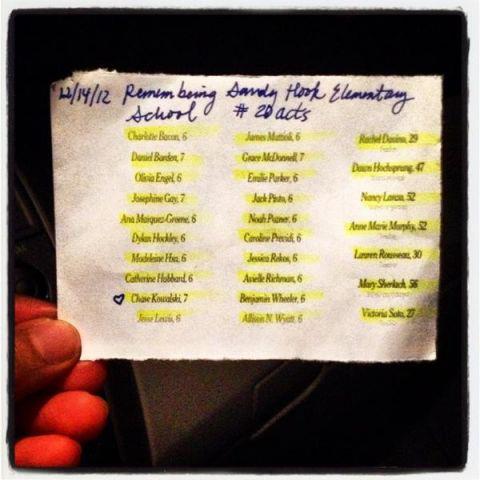 12/14/12 Remembering Sandy Hook Elementary
School # 20 acts
Charlotte Bacon, 6
Daniel Barden, 7
Olivia Engel, 6
Josephine Gay, 7
Ana Marquez-Greene, 6
Dylan Hockley, 6
Madeleine Hsu, 6
Catherine Hubbard, 6
♡ Chase Kowalski, 7
Jesse Lewis, 6
James Mattioli, 6
Grace McDonnell, 7
Emilie Parker, 6
Jack Pinto, 6
Noah Pozner, 6
Caroline Previdi, 6
Jessica Rekos, 6
Avielle Richman, 6
Benjamin Wheeler, 6
Allison N. Wyatt, 6
Rachel Davino, 29
Dawn Hochsprung, 47
Nancy Lanza, 52
Anne Marie Murphy, 52
Lauren Rousseau, 30
Mary Sherlach, 56
Victoria Soto, 27